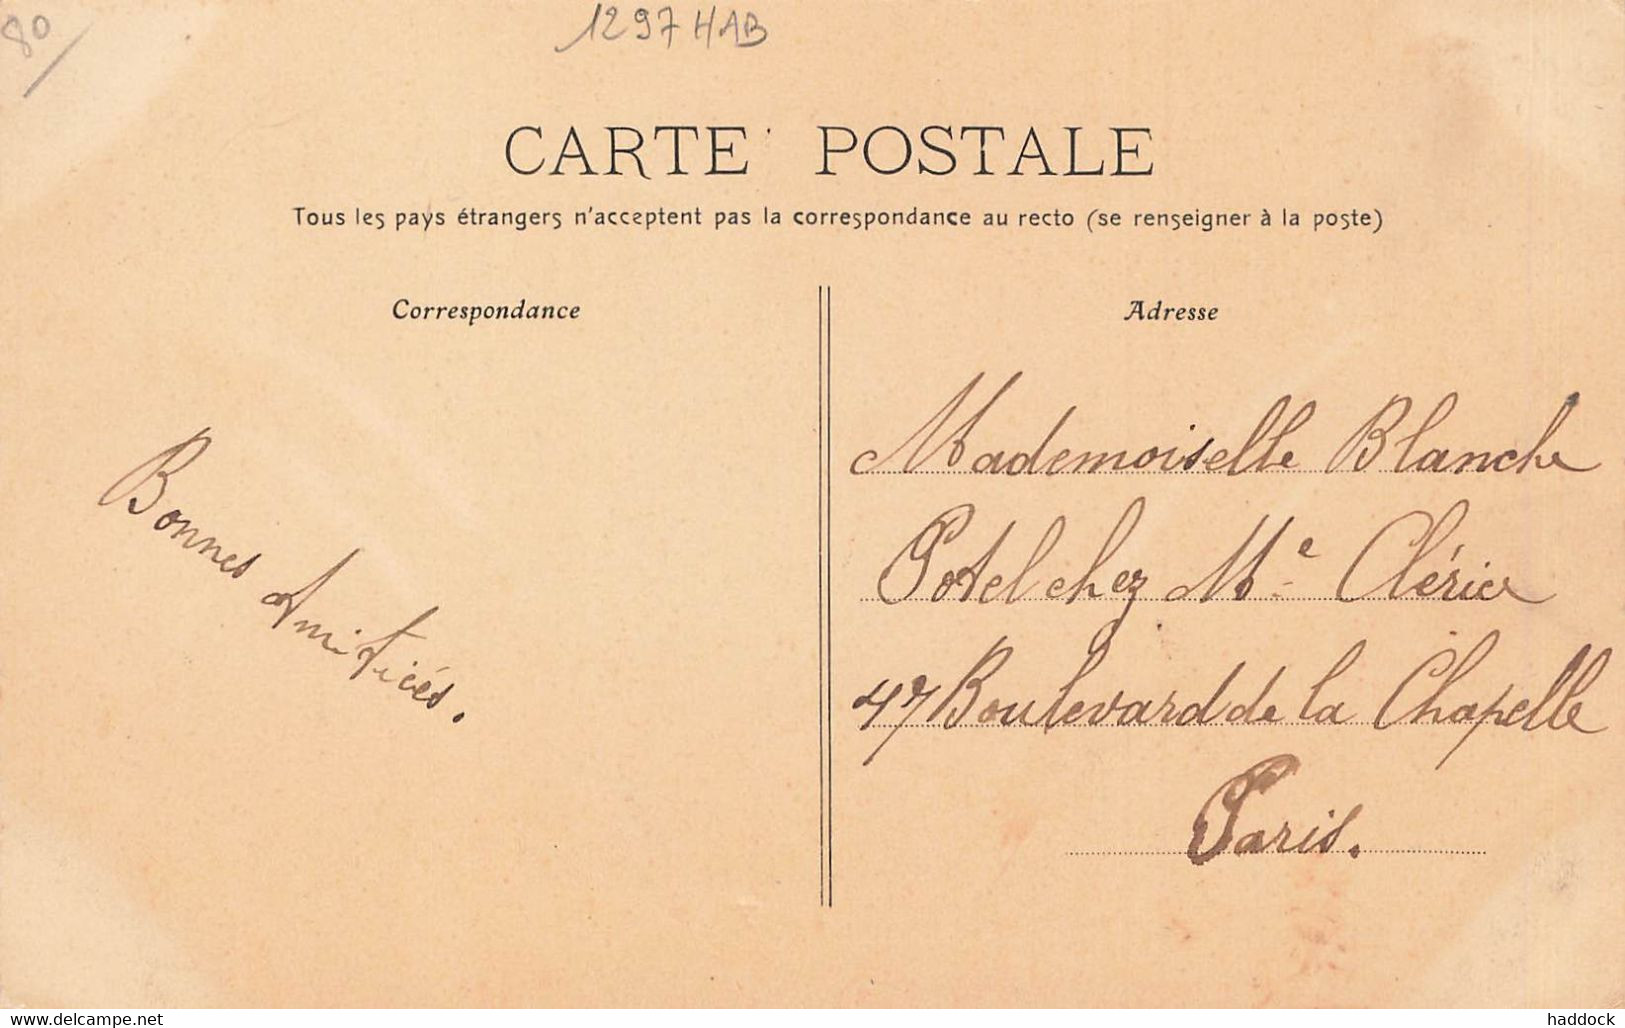 80/
1297 HAB
CARTE POSTALE
Tous les pays étrangers n'acceptent pas la correspondance au recto (se renseigner à la poste)
Correspondance
Bonnes Amitiés.
Adresse
Mademoiselle Blanche
Potel chez Me Clérice
47 Boulevard de la Chapelle
Paris.
www.delcampe.net
haddock_